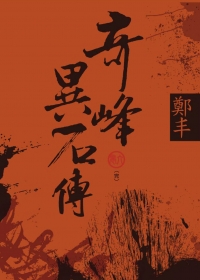 奇峰
異石傳
鄭丰